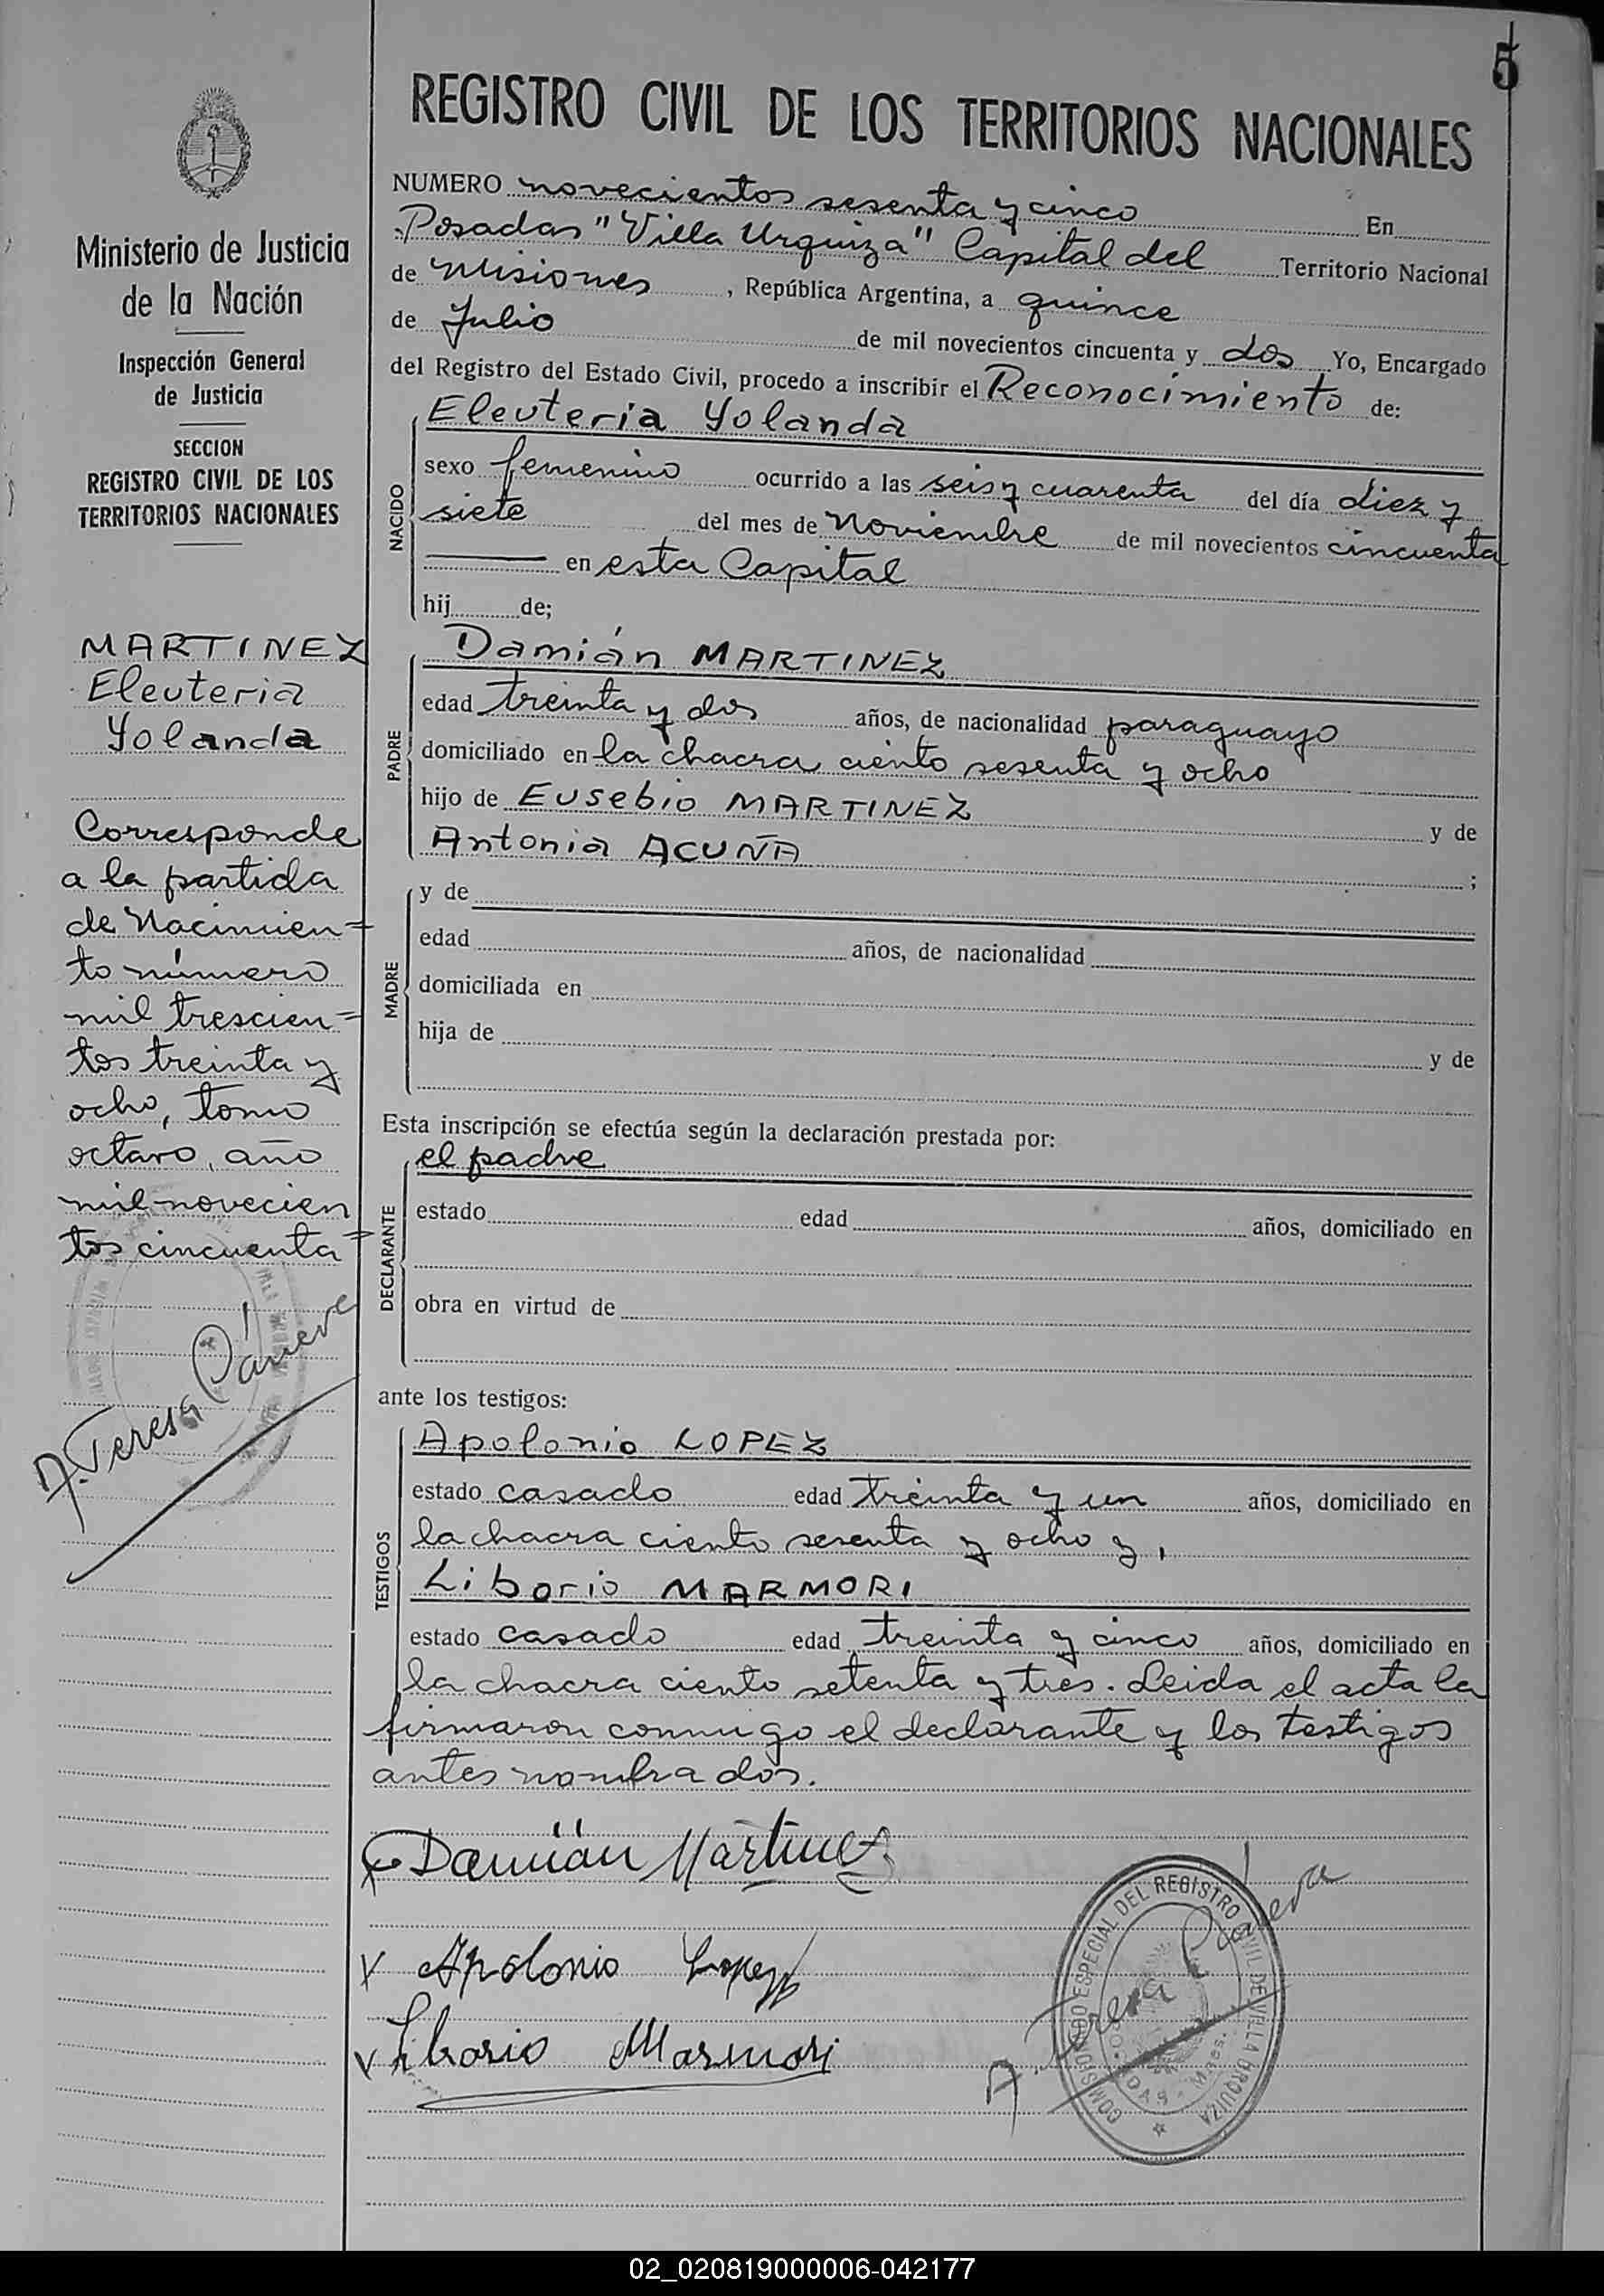 5
REGISTRO CIVIL DE LOS TERRITORIOS NACIONALES
Ministerio de Justicia
de la Nación
Inspección General
de Justicia
SECCION
REGISTRO CIVIL DE LOS
TERRITORIOS NACIONALES
MARTINEZ
Eleuteria
Yolanda
Corresponde
a la partida
de Nacimien=
to número
mil trescien=
tos treinta y
ocho, tomo
octavo, año
mil novecien
tos cincuenta=
NUMERO novecientos sesenta y cinco En
Posadas "Villa Urquiza" Capital del Territorio Nacional
de Misiones, República Argentina, a quince
de Julio de mil novecientos cincuenta y dos Yo, Encargado
del Registro del Estado Civil, procedo a inscribir el Reconocimiento de:
NACIDO
Eleuteria Yolanda
sexo femenino ocurrido a las seis y cuarenta del día diez y
siete del mes de Noviembre de mil novecientos cincuenta
en esta Capital
hij de;
PADRE
Damián MARTINEZ
edad treinta y dos años, de nacionalidad paraguayo
domiciliado en la chacra ciento sesenta y ocho
hijo de Eusebio MARTINEZ y de
Antonia ACUÑA ;
MADRE
y de
edad años, de nacionalidad
domiciliada en
hija de y de
Esta inscripción se efectúa según la declaración prestada por:
DECLARANTE
el padre
estado edad años, domiciliado en
obra en virtud de
ante los testigos:
TESTIGOS
Apolonio LOPEZ
estado casado edad treinta y un años, domiciliado en
la chacra ciento sesenta y ocho y,
Liborio MARMORI
estado casado edad treinta y cinco años, domiciliado en
la chacra ciento setenta y tres. Leida el acta la
firmaron conmigo el declarante y los testigos
antes nombrados.
Damián Martinez
Apolonio Lopez
Liborio Marmori
COMISIONADO ESPECIAL DEL REGISTRO CIVIL DE VILLA URQUIZA
POSADAS - Mnes.
02_020819000006-042177